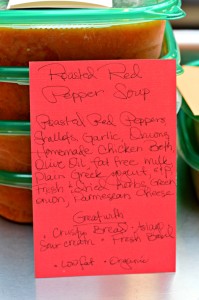 Roasted Red
Pepper Soup
Roasted Red Peppers
Shallots, Garlic, Onions,
Homemade Chicken Broth,
Olive Oil, fat free milk,
Plain Greek yogurt, s+p,
Fresh + Dried Herbs, Green
onion, Parmesean Cheese
Great with
Crusty Bread
sour cream + Fresh Basil
• Low fat • Organic